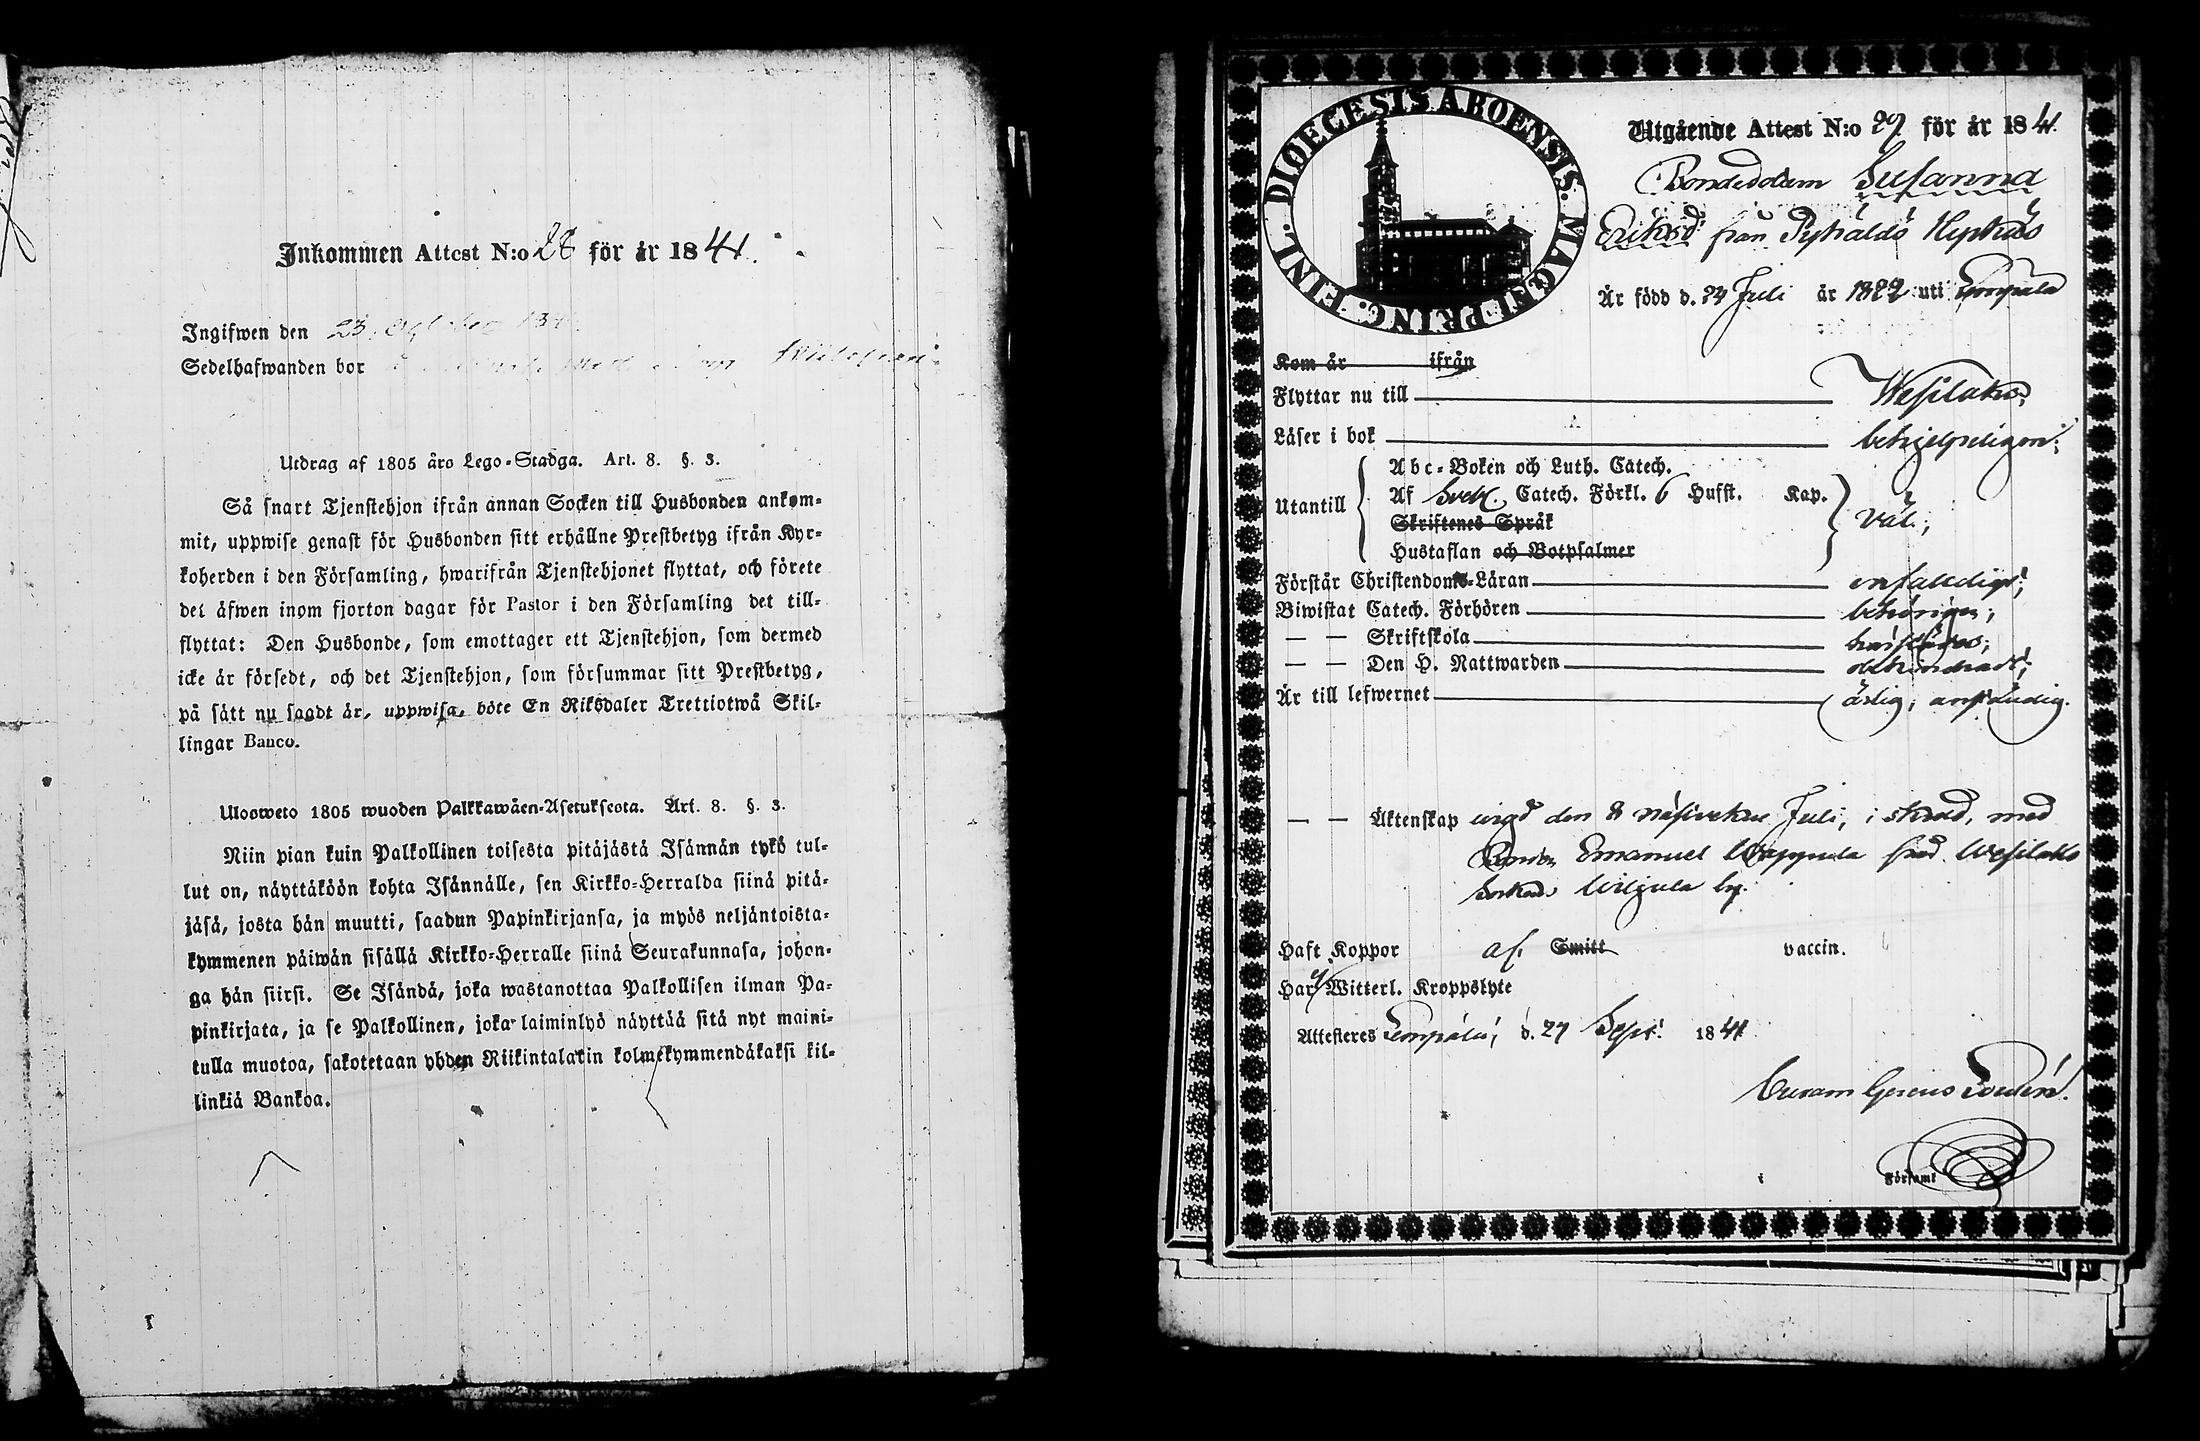 Inkommen Attest N:o 28 för år 1841.
Ingifwen den 23
Sedelhafwanden bor
Utdrag af 1805 års Lego-Stadga. Art. 8. §. 3.
Så snart Tjenstehjon ifrån annan Socken till Husbonden ankom-
mit, uppwise genast för Husbonden sitt erhållne Prestbetyg ifrån Kyr-
koherden i den Församling, hwarifrån Tjenstehjonet flyttat, och förete
det äfwen inom fjorton dagar för Pastor i den Församling det till-
flyttat: Den Husbonde, som emottager ett Tjenstehjon, som dermed
icke är försedt, och det Tjenstehjon, som försummar sitt Prestbetyg,
på sätt nu sagdt är, uppwisa, böte En Riksdaler Trettiotwå Skil-
lingar Banco.
Ulosweto 1805 wuoden Palkkawäen-Asetuksesta. Art. 8. §. 3.
Niin pian kuin Palkollinen toisesta pitäjästä Isännän tykö tul-
lut on, näyttäköön kohta Isännälle, sen Kirkko-Herralda siinä pitä-
jäsä, josta hän muutti, saadun Papinkirjansa, ja myös neljäntoista-
kymmenen päiwän sisällä Kirkko-Herralle siinä Seurakunnasa, johon-
ga hän siirsi. Se Isändä, joka wastanottaa Palkollisen ilman Pa-
pinkirjata, ja se Palkollinen, joka laiminlyö näyttää sitä nyt maini-
tulla muotoa, sakotetaan yhden Riikintalarin kolmekymmendäkaksi kil-
linkiä Bankoa.
DIOECESIS ABOENSIS. MAGNI PRINC. FINL.
Utgående Attest N:o 29 för år 1841.
Bondedottern Susanna
Eriksd: från Pyhäldö
Är född d. 24 Juli år 1822 uti Lempälä
Kom år ifrån
Flyttar nu till Wesilaks;
Läser i bok behjelpeligen;
Abc-Boken och Luth. Catech.
Utantill Af Sveb. Catech. Förkl. 6 Hufst. Kap. väl;
Skriftenes Språk
Hustaflan och Botpsalmer
Förstår Christendoms-Läran enfaldigt;
Biwistat Catech. Förhören behörigen;
— — Skriftskola
— — Den H. Nattwarden obehindradt;
Är till lefwernet ärlig, anständig.
— — Äktenskap wigd den 8 Juli, med
Bonden Emanuel från Wesilaks
Socken by.
Haft Koppor af Smitt vaccin.
Har ej Witterl. Kroppslyte
Attesteres Lempälä, d. 27 Sept: 1841
Församl